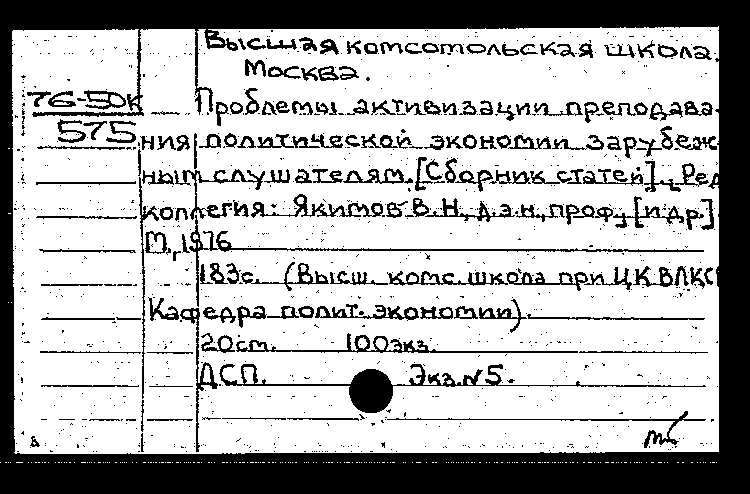 Высшая комсомольская школа.
Москва.
76-50к
575
Проблемы активизации преподава-
ния политической экономии зарубеж
ным слушателям. [Сборник статей]. Ред
коллегия: Якимов В.Н., д.э.н., проф., [и др.]
М., 1976
183с. (Высш. комс. школа при ЦК ВЛКС
Кафедра полит. экономии).
20см. 100экз.
ДСП. Экз.N5.